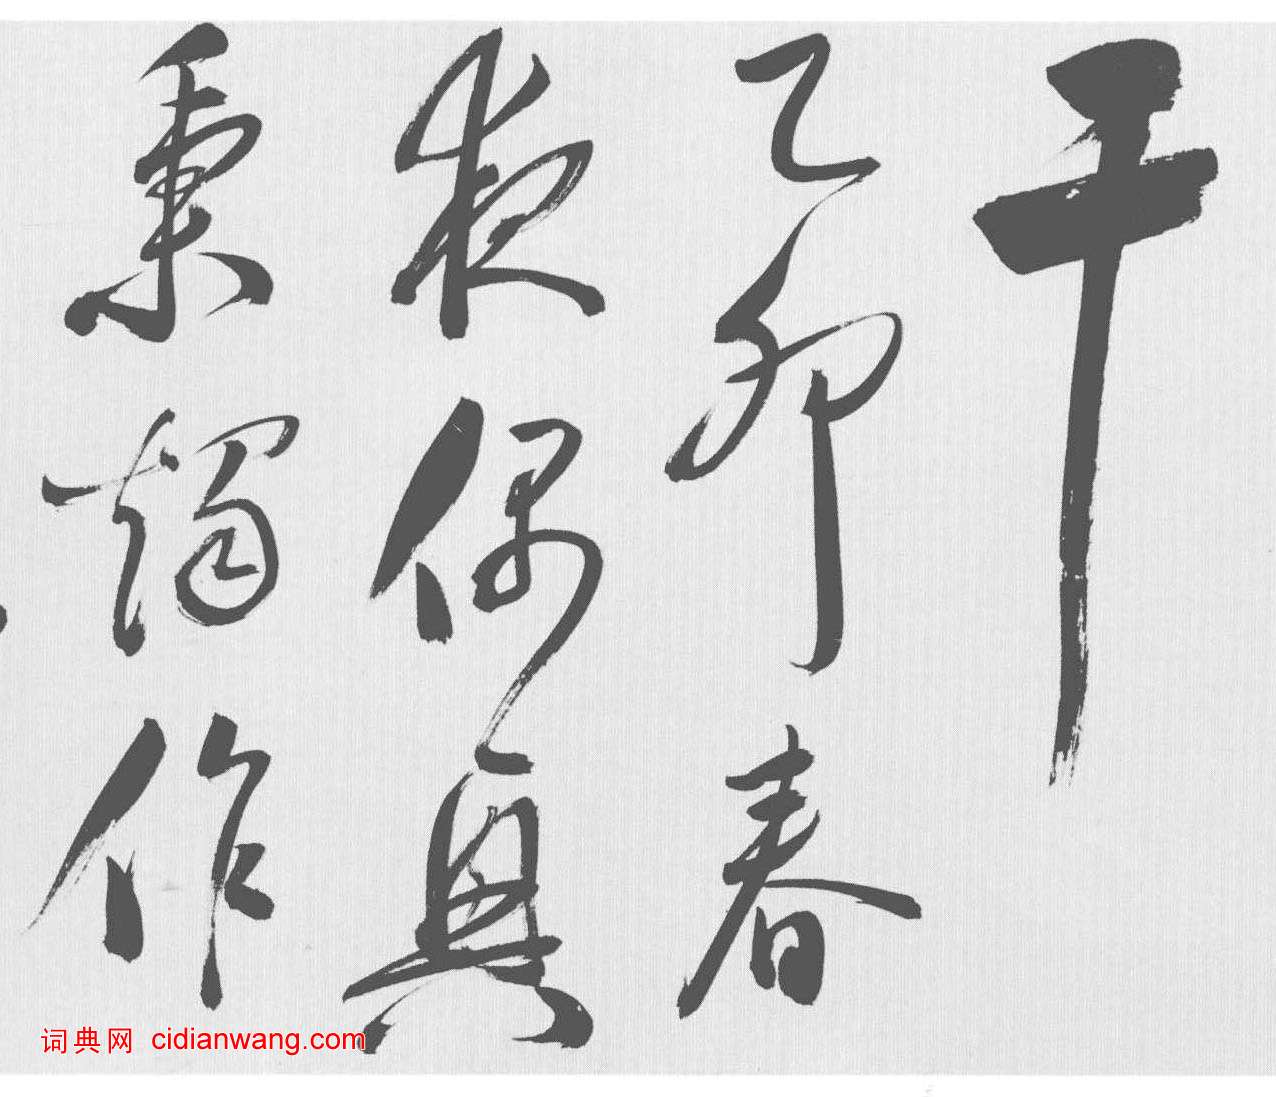 干
乙卯春
夜偶興
秉燭作
词典网 cidianwang.com